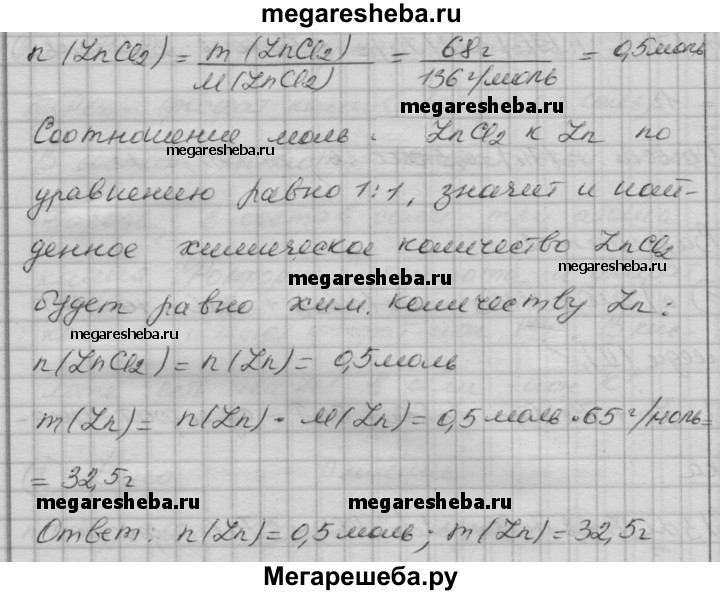 megaresheba.ru
n(ZnCl₂) = m(ZnCl₂) / M(ZnCl₂) = 68 г / 136 г/моль = 0,5 моль
megaresheba.ru
Соотношение моль ZnCl₂ к Zn по
megaresheba.ru
megaresheba.ru
уравнению равно 1:1, значит и най-
денное химическое количество ZnCl₂
megaresheba.ru
megaresheba.ru
будет равно хим. количеству Zn:
megaresheba.ru
n(ZnCl₂) = n(Zn) = 0,5 моль
m(Zn) = n(Zn) · M(Zn) = 0,5 моль · 65 г/моль =
= 32,5 г
megaresheba.ru
megaresheba.ru
Ответ: n(Zn) = 0,5 моль; m(Zn) = 32,5 г
Мегарешеба.ру